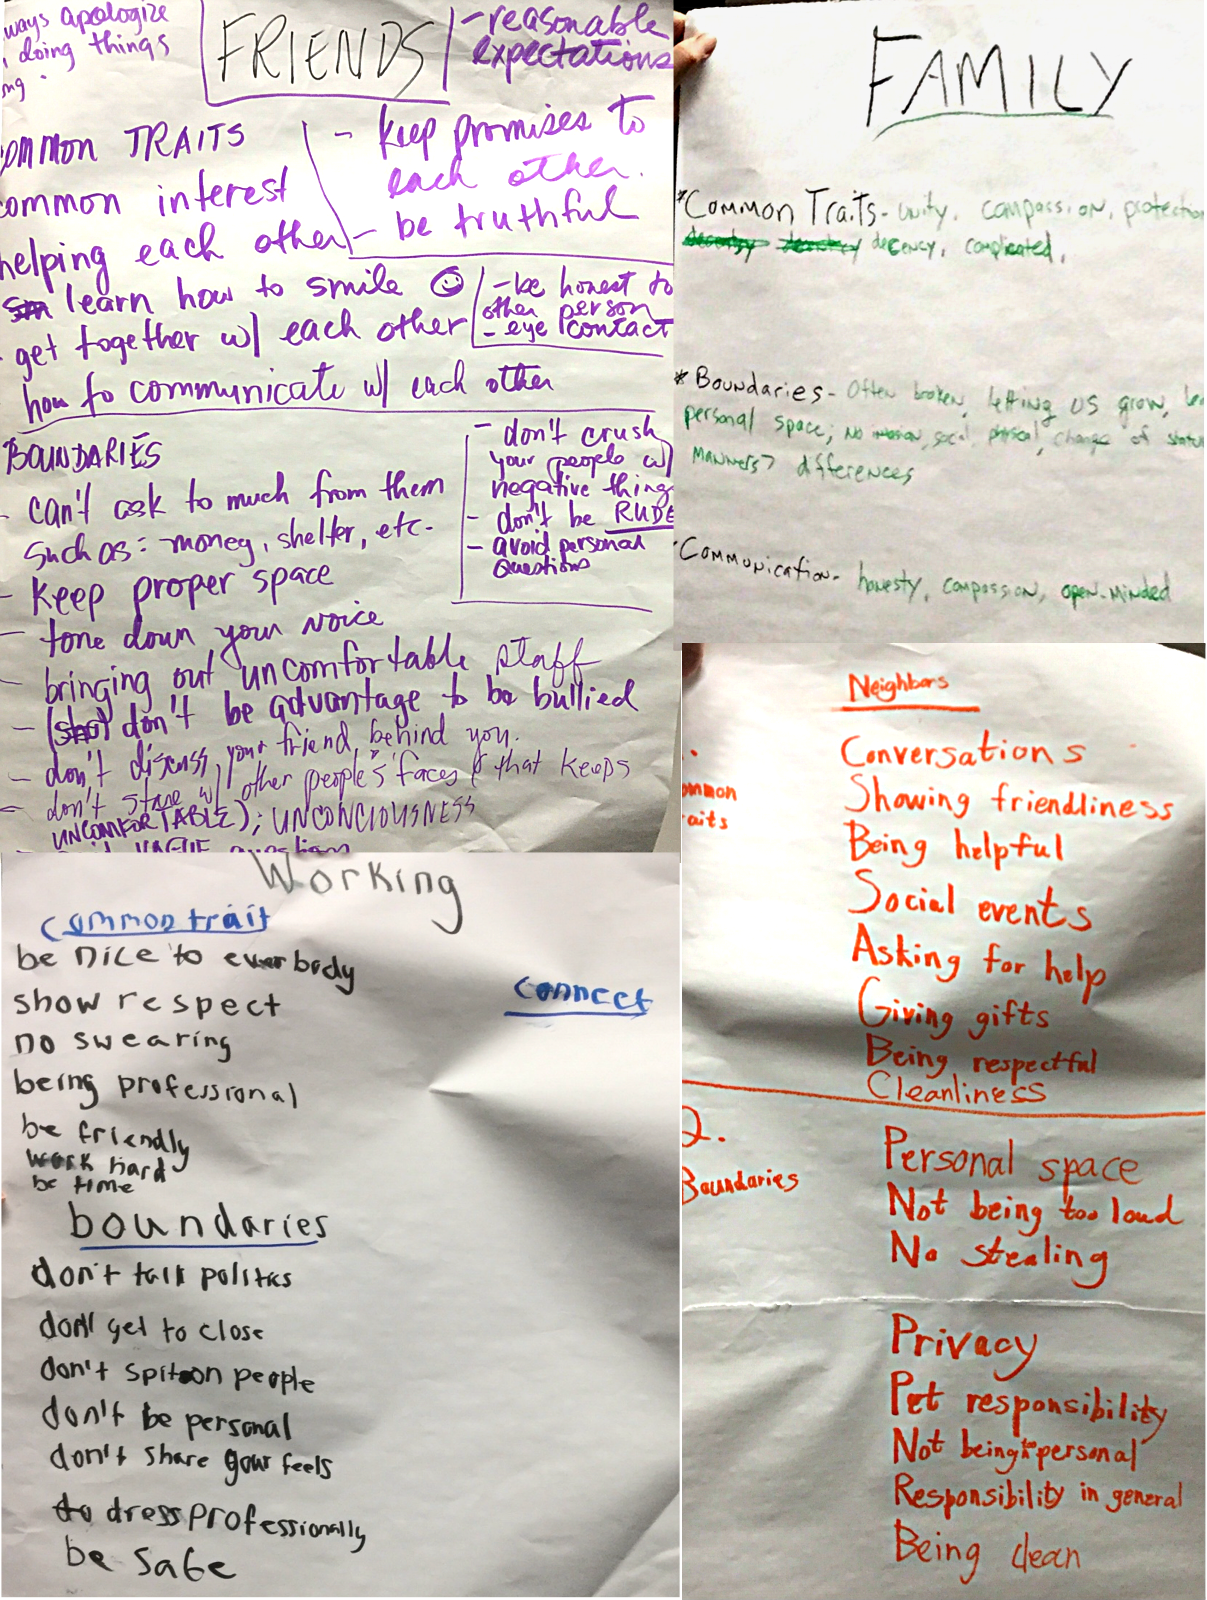 ways apologize
doing things
ng.
FRIENDS
-reasonable
expectations
ommon TRAITS
ommon interest
helping each other
learn how to smile
get together w/ each other
how to communicate w/ each other
- keep promises to
each other.
- be truthful
-be honest to
other person
- eye contact
BOUNDARIES
- can't ask to much from them
such as: money, shelter, etc.
- keep proper space
- tone down your voice
- bringing out uncomfortable staff
- don't be advantage to be bullied
- don't discuss your friend behind you.
- don't stare w/ other people's faces & that keeps
UNCOMFORTABLE); UNCONCIOUSNESS
VAGUE question
- don't crush
your people w/
negative thing
- don't be RUDE
- avoid personal
questions
FAMILY
*Common Traits- unity, compassion, protection
decency, complicated,
* Boundaries- Often broken, letting us grow,
personal space; No invasion, social, physical, change of statu
manners> differences
Communication- honesty, compassion, open-minded
Working
common trait
be nice to everbody
show respect
no swearing
being professional
be friendly
work hard
be time
connect
boundaries
don't talk politics
don't get to close
don't spit on people
don't be personal
don't share your feels
dress professionally
be safe
Neighbors
ommon
aits
Conversations
Showing friendliness
Being helpful
Social events
Asking for help
Giving gifts
Being respectful
Cleanliness
2.
Boundaries
Personal space
Not being too loud
No stealing
Privacy
Pet responsibility
Not being too personal
Responsibility in general
Being clean